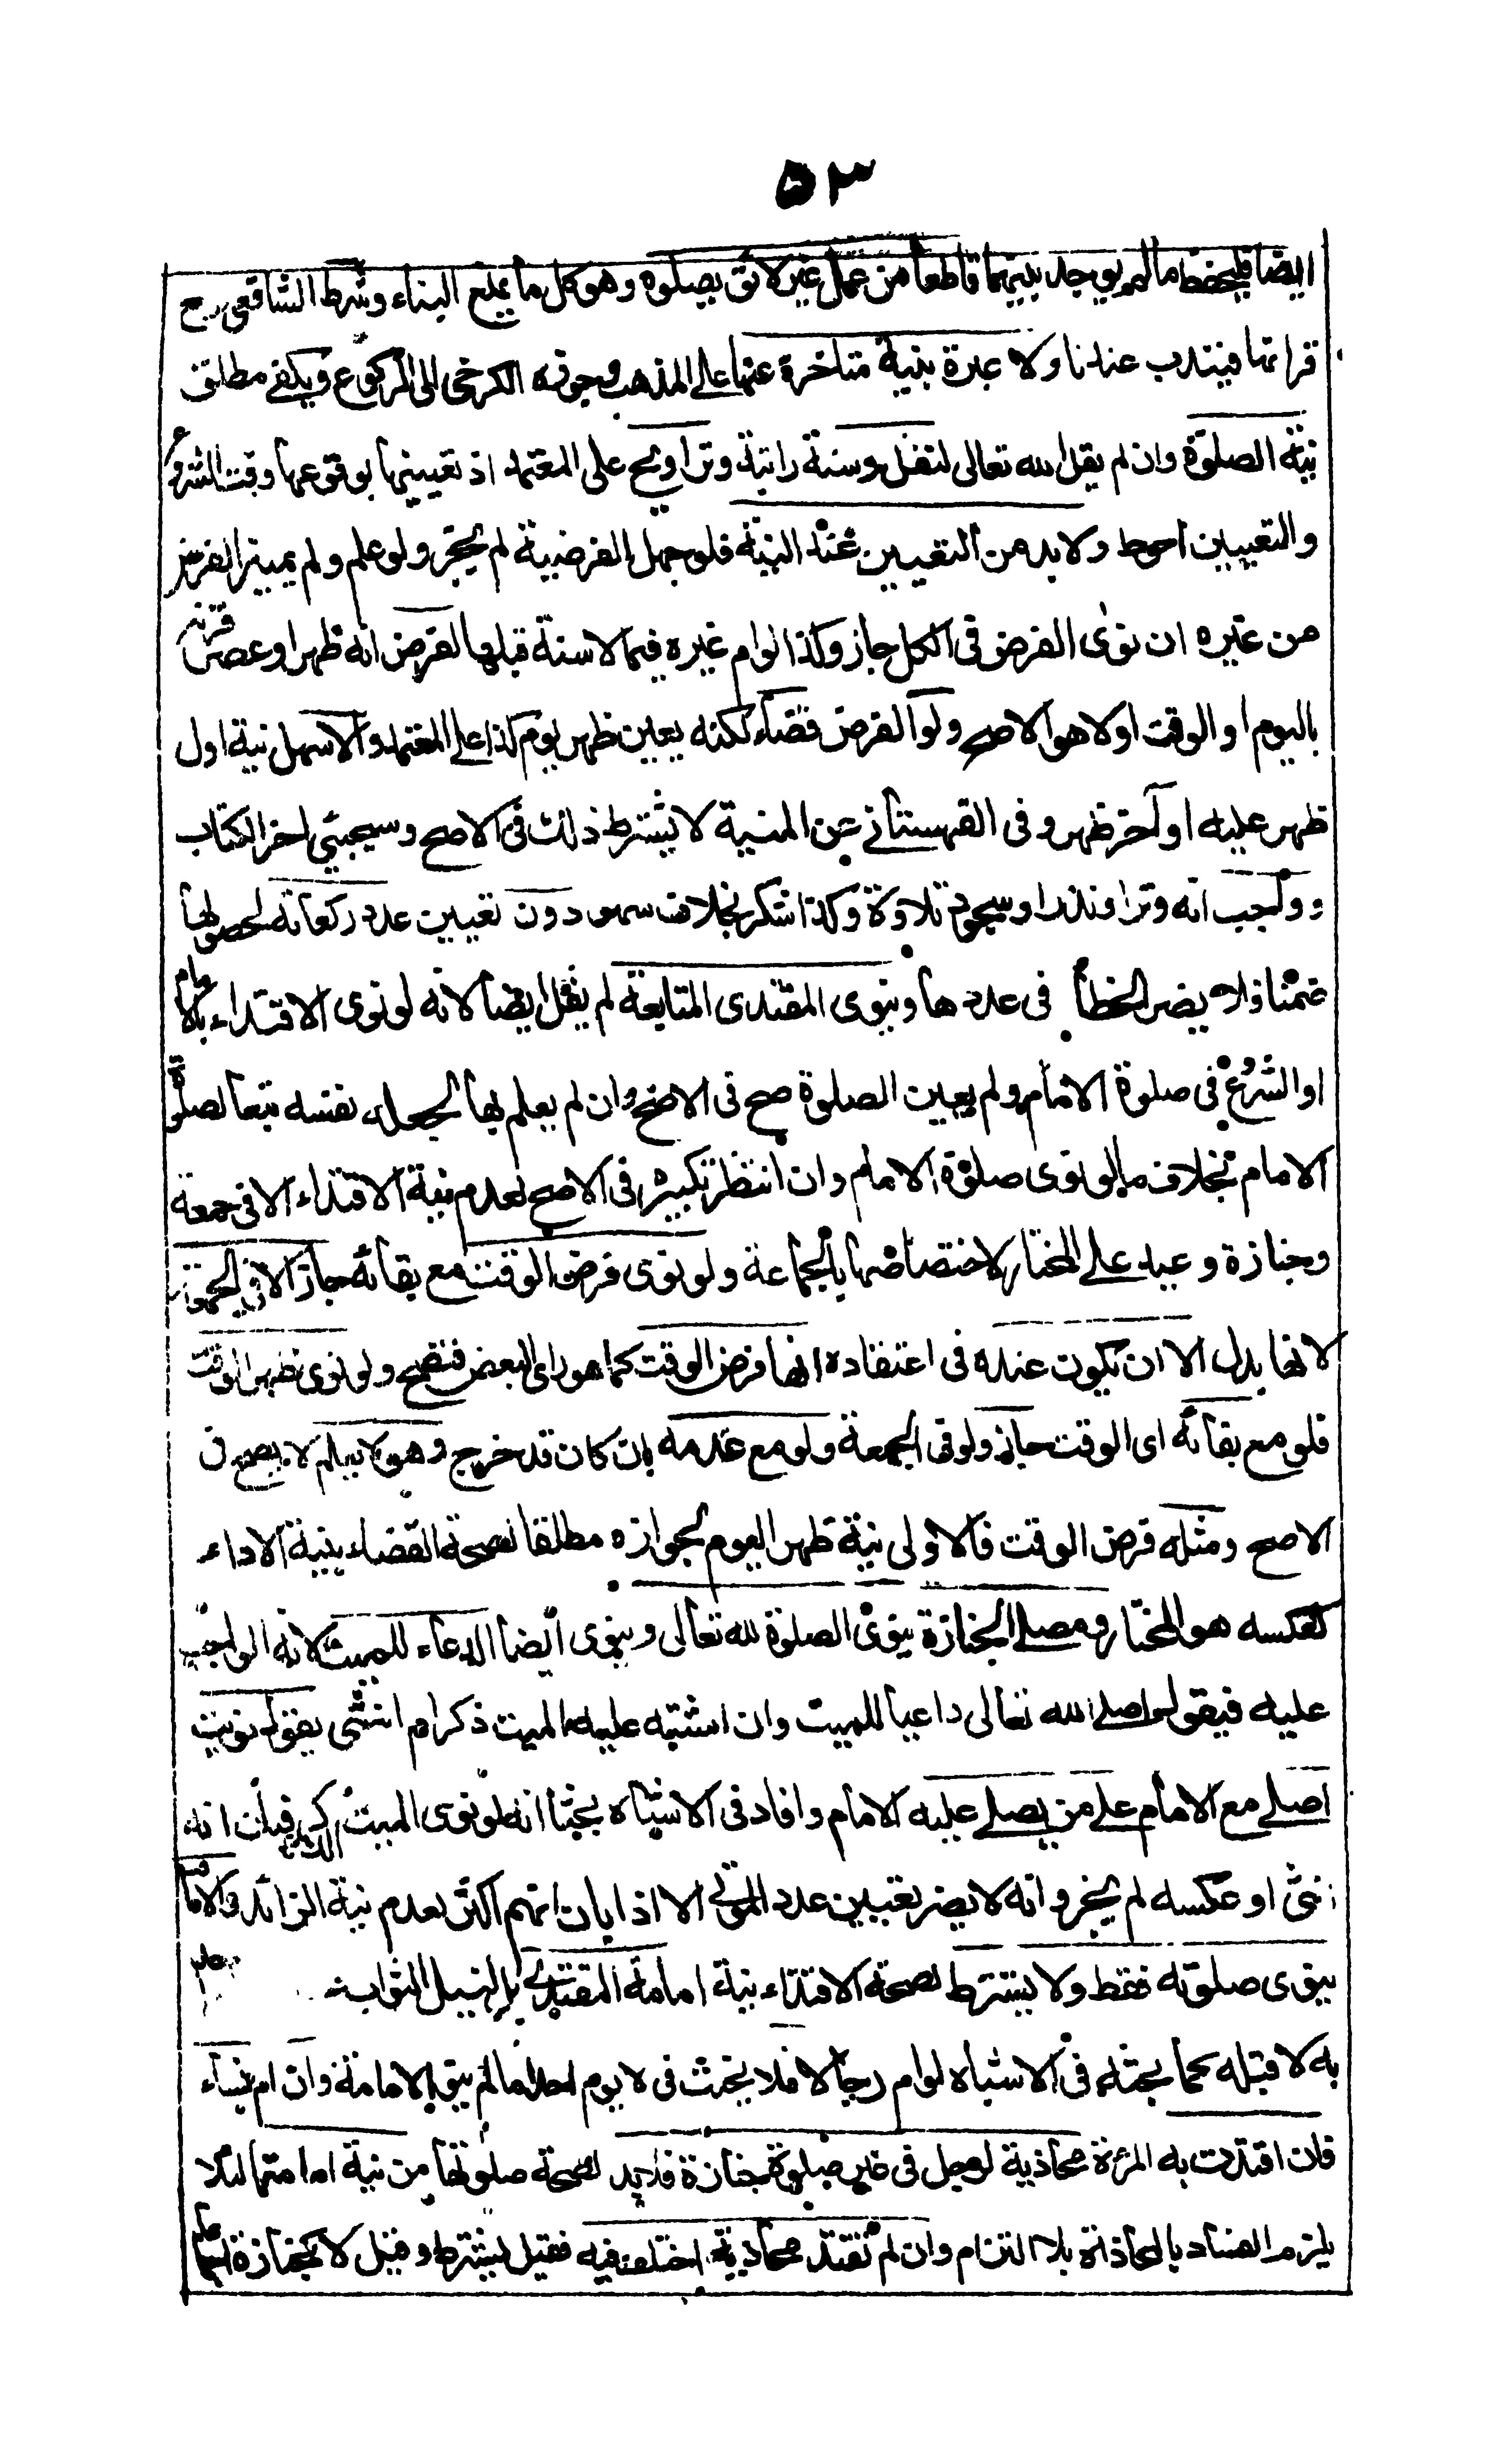 ٥٣
ايضا فليحفظ ما لم يوجد بينهما قاطعا من عمل غير لائق بصلوه وهو كل ما يمنع البناء وشرط الشافعي رح
قرانها فيندب عندنا ولا عبرة بنية متاخرة عنها على المذهب وجوزه الكرخي الى الركوع ويكفي مطلق
نية الصلوة وان لم يقل لله تعالى لنفل وسنة راتبة وتراويح على المعتمد اذ تعيينها بوقوعها وقت الشروع
والتعيين احوط ولا بد من التعيين عند النية فلو جهل الفرضية لم يجز ولو علم ولم يميز الفرض
من غيره ان نوى الفرض في الكل جاز وكذا لو ام غيره فيما لا سنة قبلها لفرض انه ظهر او عصر قرنه
باليوم او الوقت او لا هو الاصح ولو الفرض قضاء لكنه يعين ظهر يوم كذا على المعتمد والاسهل نية اول
ظهر عليه او آخر ظهر وفي القهستاني عن المنية لا يشترط ذلك في الاصح وسيجئي اخر الكتاب
وواجب انه وتر او نذر او سجود تلاوة وكذا شكر بخلاف سهو دون تعيين عدد ركعاته لحصولها
ضمنا فلا يضر الخطأ في عددها وينوى المقتدى المتابعة لم يقل ايضا لانه لو نوى الاقتداء بالامام
او الشروع في صلوة الامام ولم يعين الصلوة صح في الاصح وان لم يعلم بها لجعله نفسه تبعا لصلوة
الامام بخلاف ما لو نوى صلوة الامام وان انتظر تكبيره في الاصح لعدم نية الاقتداء الا في جمعة
وجنازة وعيد على المختار لاختصاصها بالجماعة ولو نوى فرض الوقت مع بقائه جاز الا في الجمعة
لانها بدل الا ان يكون عنده في اعتقاده انها فرض الوقت كما هو راى البعض فتصح ولو نوى ظهر الوقت
فلو مع بقائه اى الوقت جاز ولو في الجمعة ولو مع عدمه بان كان قد خرج وهو لا يعلم لا يصح في
الاصح ومثله فرض الوقت فالاولى نية ظهر اليوم لجوازه مطلقا لصحة القضاء بنية الاداء
كعكسه هو المختار ومصلى الجنازة ينوى الصلوة لله تعالى وينوى ايضا الدعاء للميت لانه الواجب
عليه فيقول اصلى لله تعالى داعيا للميت وان اشتبه عليه الميت ذكر ام انثى يقول نويت
اصلى مع الامام على من يصلى عليه الامام وافاد في الاشباه بحثا انه لو نوى الميت الذكر فبان انه
انثى او عكسه لم يجز وانه لا يضر تعيين عدد الموتى الا اذا بان انهم اكثر لعدم نية الزائد والامام
ينوى صلوته فقط ولا يشترط لصحة الاقتداء نية امامة المقتدى بل لنيل الثواب
به لا قبله كما بحثه في الاشباه لو ام رجالا فلا يحنث في لا يوم احدا ما لم ينو الامامة وان ام نساء
فان اقتدت به المرءة محاذية لرجل في غير صلوة جنازة فلا بد لصحة صلوتها من نية امامتها لئلا
يلزم الفساد بالمحاذاة بلا التزام وان لم تقتد محاذية اختلف فيه فقيل يشترط وقيل لا كجنازة اجماعا